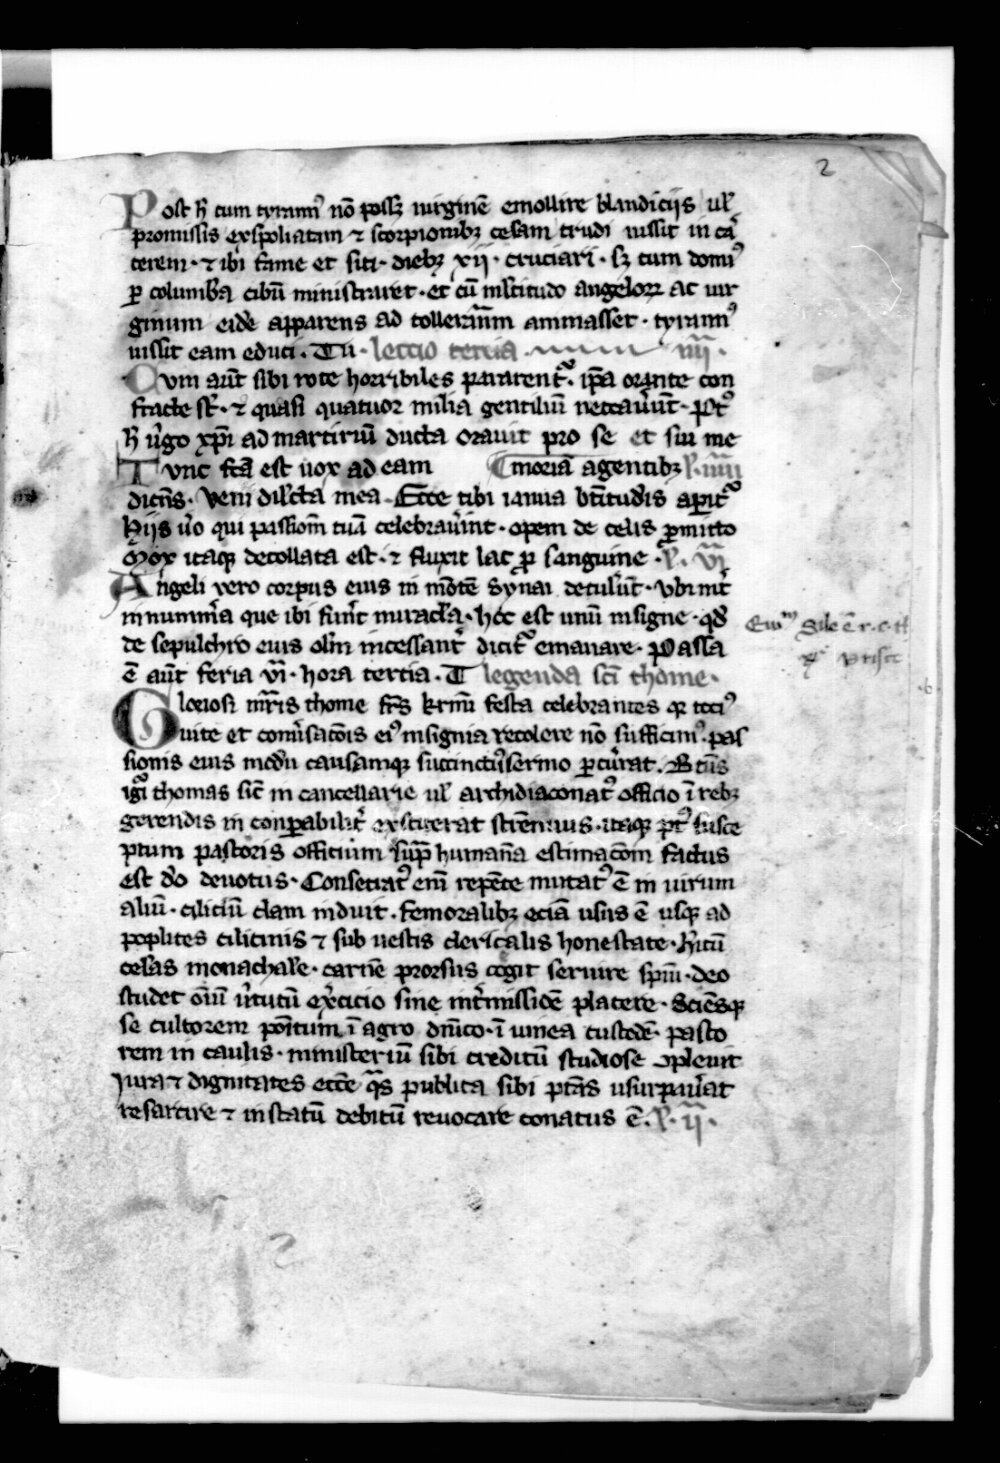 2
Post h̄ cum tyrann᷒ nō possꝫ uirginē emollire blandiciis ul᷒
promissis exspoliatam ⁊ scorpionibꝫ cesam trudi iussit in car
cerem · ⁊ ibi fame et siti · diebꝫ xii · cruciari · sꝫ cum domin᷒
ꝑ columbā cibū ministraret · et cū m̄ltitudo angeloꝝ ac uir
ginum eidē apparens ad tollerānm animasset · tyrann᷒
iussit eam educi · Tu · lectio tertia · iiii ·
Cum aūt sibi rote horribiles pararent᷒ · ip̄a orante con
fracte sт̄ · ⁊ quasi quatuor milia gentiliū neccauerūt · Pt᷒
h̄ ūgo xp̄i ad martiriū ducta orauit pro se et sui me
Tunc fcā est uox ad eam moriā agentibꝫ l · iiiii
dicēs · Veni dilc̄ta mea · Ecce tibi ianua bt̄itudīs aperit᷒
Hiis ūo qui passiom̄ tuā celebraūint · opem de celis ꝓmitto
Mox itaqꝫ decollata est · ⁊ fluxit lac ꝓ sanguine · l · vi
Angeli vero corpus eius in mōte Synai detulerūt · Vbi int̄
innumīa que ibi fiūt miracl̄a · hoc est unū insigne · qd̄
de sepulchro eius olm̄ incessant̄ dicit᷒ emanare · Passa
ē aūt feria vi · hora tertia · T legenda sc̄i thome ·
Gloriosi m̄ris thome fr̄s kr̄mi festa celebrantes qꝛ toci᷒
uite et conūsacōis ei᷒ insignia recolere nō sufficim᷒ · pas
sionis eius modū causamqꝫ succinct᷒ sermo ꝑcurrat · Bt̄us
igr̄ thomas sic̄ in cancellarie ul᷒ archidiaconat᷒ officio ī rebꝫ
gerendis inconparabilit̄ exstiterat strenuus · itaqꝫ pt᷒ susce
ptum pastoris officium sup̄ humanā estimacōm factus
est dō deuotus · Consecrat᷒ enī repēte mutat᷒ ē in uirum
aliū · ciliciū clam induit · femoralibꝫ eciā usus ē usqꝫ ad
poplites cilicinis ⁊ sub uestis clericalis honestate · hītū
celās monachalē · carnē prorsus cogit seruire spm̄ · deo
studet om̄ū ūtutū ex̄cicio sine int̄missiōe placere · Sciēsqꝫ
se cultorem poītum ī agro dn̄ico · ī uinea custodē · pasto
rem in caulis · ministeriū sibi creditū studiose ɔpleuit
Iura ⁊ dignitates ecc̄e q̄s publica sibi ptās usurpauāt
resarcire ⁊ in statū debitū reuocare conatus ē · l · ii ·